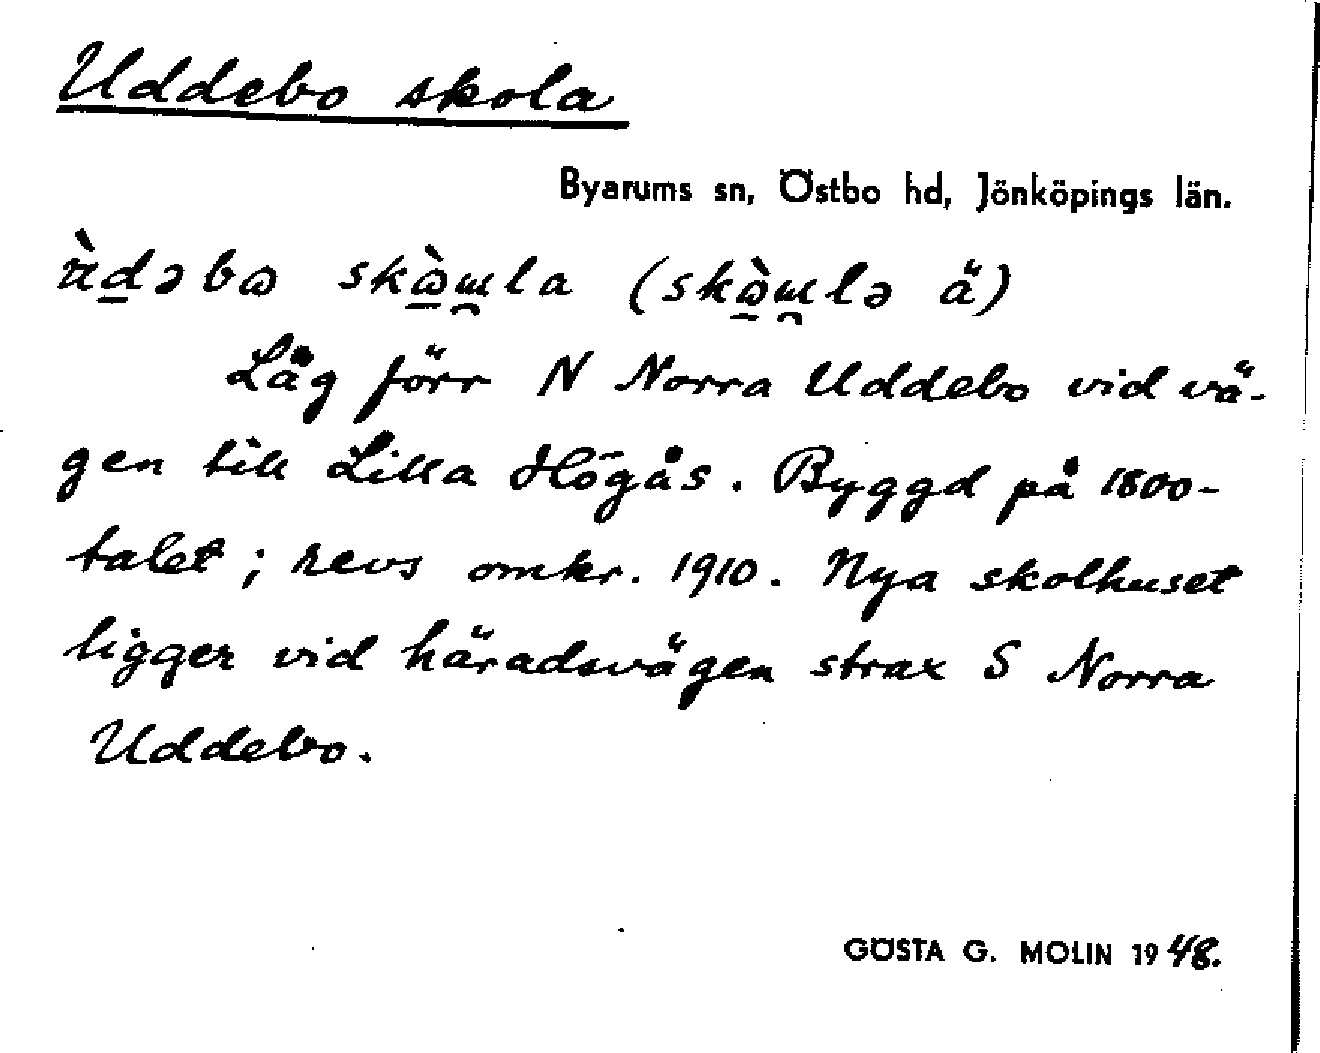 Uddebo skola
Byarums sn, Östbo hd, Jönköpings län.
Låg förr N Norra Uddebo vid vä-
gen till Lilla Högås. Byggd på 1800-
talet; revs omkr. 1910. Nya skolhuset
ligger vid häradsvägen strax S Norra
Uddebo.
GÖSTA G. MOLIN 1948.